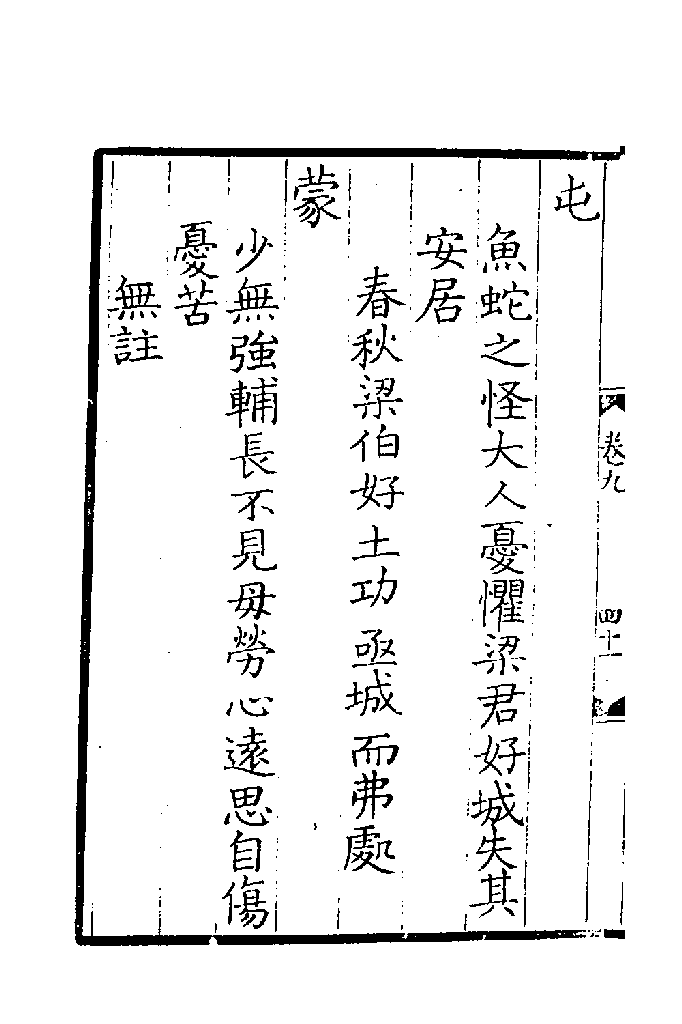 屯
魚蛇之怪大人憂懼梁君好城失其
安居
春秋梁伯好土功亟城而弗處
蒙
少無強輔長不見毋勞心遠思自傷
憂苦
無註
卷九
四十一